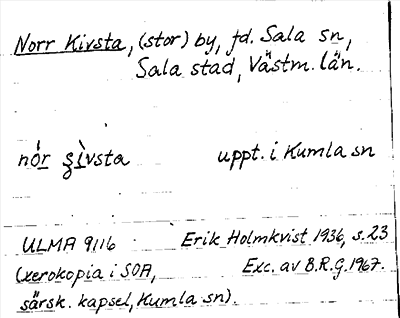 Norr Kivsta, (stor) by, fd. Sala sn,
Sala stad, Västm. län.
uppt. i Kumla sn
ULMA 9116 Erik Holmkvist 1936, s. 23
(xerokopia i SOA, Exc. av B.R.G. 1967.
särsk. kapsel, Kumla sn).